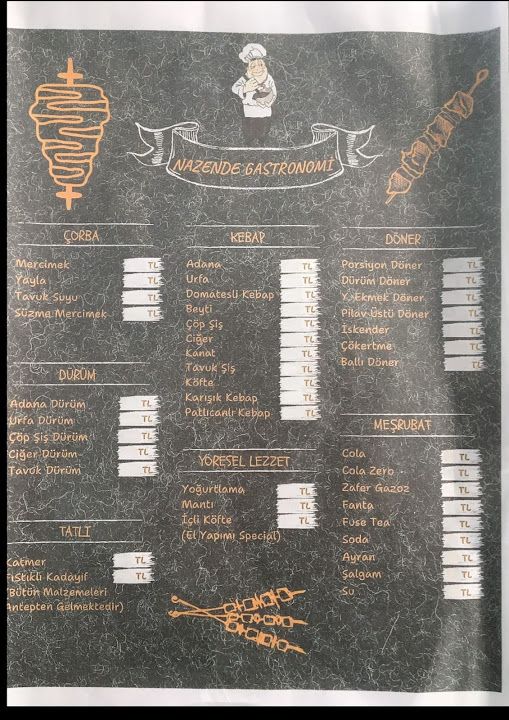 NAZENDE GASTRONOMİ
ÇORBA
Mercimek TL
Yayla TL
Tavuk Suyu TL
Süzme Mercimek TL
DÜRÜM
Adana Dürüm TL
Urfa Dürüm TL
Çöp Şiş Dürüm TL
Ciğer Dürüm TL
Tavuk Dürüm TL
TATLI
Katmer TL
Fıstıklı Kadayıf TL
(Bütün Malzemeleri
Antepten Gelmektedir)
KEBAP
Adana TL
Urfa TL
Domatesli Kebap TL
Beyti TL
Çöp Şiş TL
Ciğer TL
Kanat TL
Tavuk Şiş TL
Köfte TL
Karışık Kebap TL
Patlıcanlı Kebap TL
YÖRESEL LEZZET
Yoğurtlama TL
Mantı TL
İçli Köfte TL
(El Yapımı Special)
DÖNER
Porsiyon Döner TL
Dürüm Döner TL
Y. Ekmek Döner TL
Pilav Üstü Döner TL
İskender TL
Çökertme TL
Ballı Döner TL
MEŞRUBAT
Cola TL
Cola Zero TL
Zafer Gazoz TL
Fanta TL
Fuse Tea TL
Soda TL
Ayran TL
Şalgam TL
Su TL